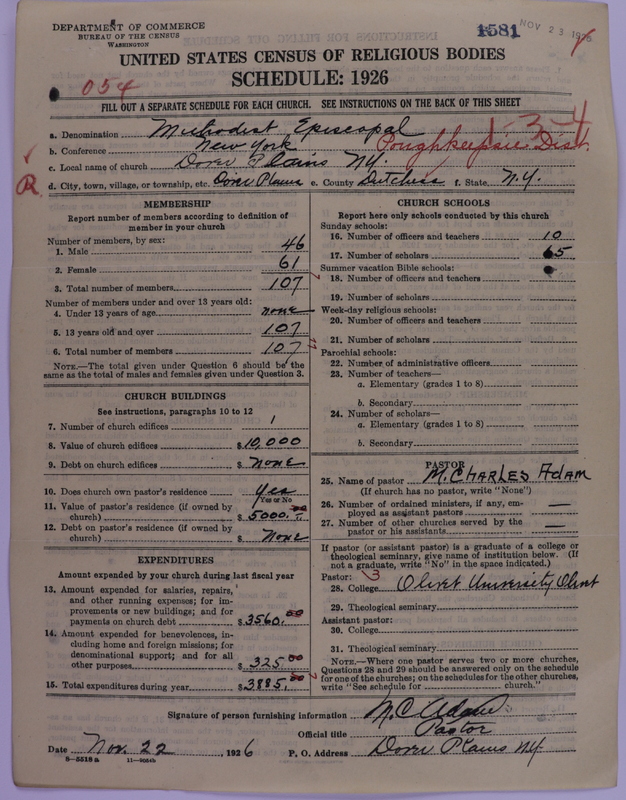 DEPARTMENT OF COMMERCE
BUREAU OF THE CENSUS
WASHINGTON
1581
NOV 23 1926
UNITED STATES CENSUS OF RELIGIOUS BODIES
054
SCHEDULE: 1926
FILL OUT A SEPARATE SCHEDULE FOR EACH CHURCH. SEE INSTRUCTIONS ON THE BACK OF THIS SHEET
1-3-4
a. Denomination Methodist Episcopal
b. Conference New York Poughkeepsie Dist.
c. Local name of church Dover Plains N.Y.
R
d. City, town, village, or township, etc. Dover Plains e. County Dutchess f. State N.Y.
MEMBERSHIP
Report number of members according to definition of
member in your church
Number of members, by sex:
1. Male 46
2. Female 61
3. Total number of members 107
Number of members under and over 13 years old:
4. Under 13 years of age none
5. 13 years old and over 107
6. Total number of members 107
NOTE.—The total given under Question 6 should be the
same as the total of males and females given under Question 3.
CHURCH BUILDINGS
See instructions, paragraphs 10 to 12
7. Number of church edifices 1
8. Value of church edifices $10,000
9. Debt on church edifices $ None
10. Does church own pastor's residence Yes
Yes or No
11. Value of pastor's residence (if owned by
church) $5000.00
12. Debt on pastor's residence (if owned by
church) $ None
EXPENDITURES
Amount expended by your church during last fiscal year
13. Amount expended for salaries, repairs,
and other running expenses; for im-
provements or new buildings; and for
payments on church debt $3560.00
14. Amount expended for benevolences, in-
cluding home and foreign missions; for
denominational support; and for all
other purposes $325.00
15. Total expenditures during year $3885.00
CHURCH SCHOOLS
Report here only schools conducted by this church
Sunday schools:
16. Number of officers and teachers 10
17. Number of scholars 65
Summer vacation Bible schools:
18. Number of officers and teachers
19. Number of scholars
Week-day religious schools:
20. Number of officers and teachers
21. Number of scholars
Parochial schools:
22. Number of administrative officers
23. Number of teachers—
a. Elementary (grades 1 to 8)
b. Secondary
24. Number of scholars—
a. Elementary (grades 1 to 8)
b. Secondary
PASTOR
25. Name of pastor M. CHARLES ADAM
(If church has no pastor, write "None")
26. Number of ordained ministers, if any, em-
ployed as assistant pastors —
27. Number of other churches served by the
pastor or his assistants —
If pastor (or assistant pastor) is a graduate of a college or
theological seminary, give name of institution below. (If
not a graduate, write "No" in the space indicated.)
Pastor: 3
28. College Olivet University, Olivet
29. Theological seminary
Assistant pastor:
30. College
31. Theological seminary
NOTE.—Where one pastor serves two or more churches,
Questions 28 and 29 should be answered only on the schedule
for one of the churches; on the schedules for the other churches,
write "See schedule for church."
Signature of person furnishing information M. C. Adam
Official title Pastor
Date Nov. 22, 1926 P. O. Address Dover Plains N.Y.
8-5518 a